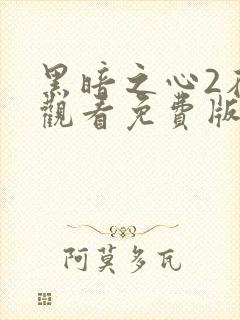 黑暗之心2
觀看免費版
阿莫多瓦